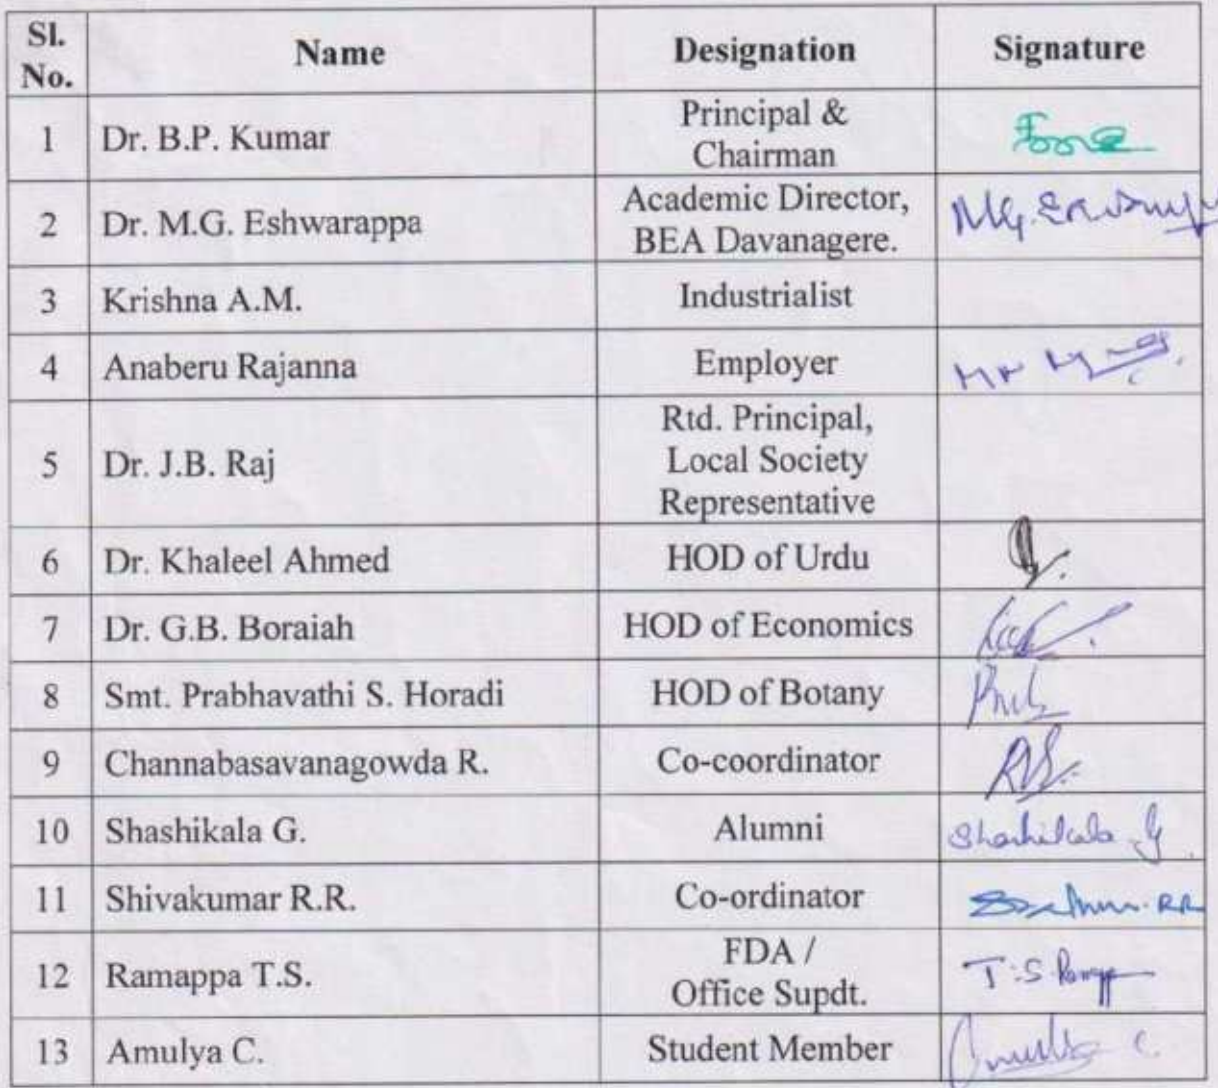 Sl. No. Name Designation Signature
1 Dr. B.P. Kumar Principal & Chairman
2 Dr. M.G. Eshwarappa Academic Director, BEA Davanagere. M.G.
3 Krishna A.M. Industrialist
4 Anaberu Rajanna Employer
5 Dr. J.B. Raj Rtd. Principal, Local Society Representative
6 Dr. Khaleel Ahmed HOD of Urdu
7 Dr. G.B. Boraiah HOD of Economics
8 Smt. Prabhavathi S. Horadi HOD of Botany
9 Channabasavanagowda R. Co-coordinator
10 Shashikala G. Alumni Shashikala G
11 Shivakumar R.R. Co-ordinator
12 Ramappa T.S. FDA / Office Supdt. T.S
13 Amulya C. Student Member